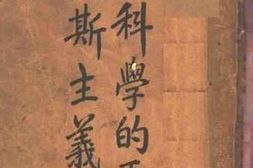 科學的
斯主義